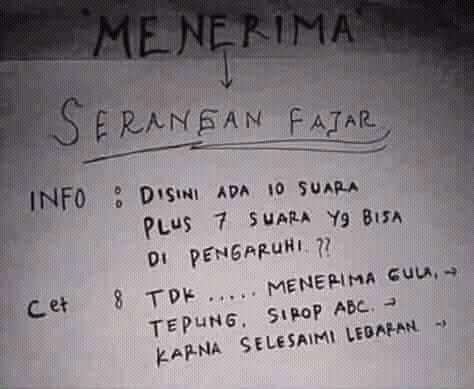 "MENERIMA"
↓
SERANGAN FAJAR
INFO : DISINI ADA 10 SUARA
PLUS 7 SUARA Yg BISA
DI PENGARUHI.??
Cet : TDK ..... MENERIMA GULA, →
TEPUNG, SIROP ABC. →
KARNA SELESAIMI LEBARAN →